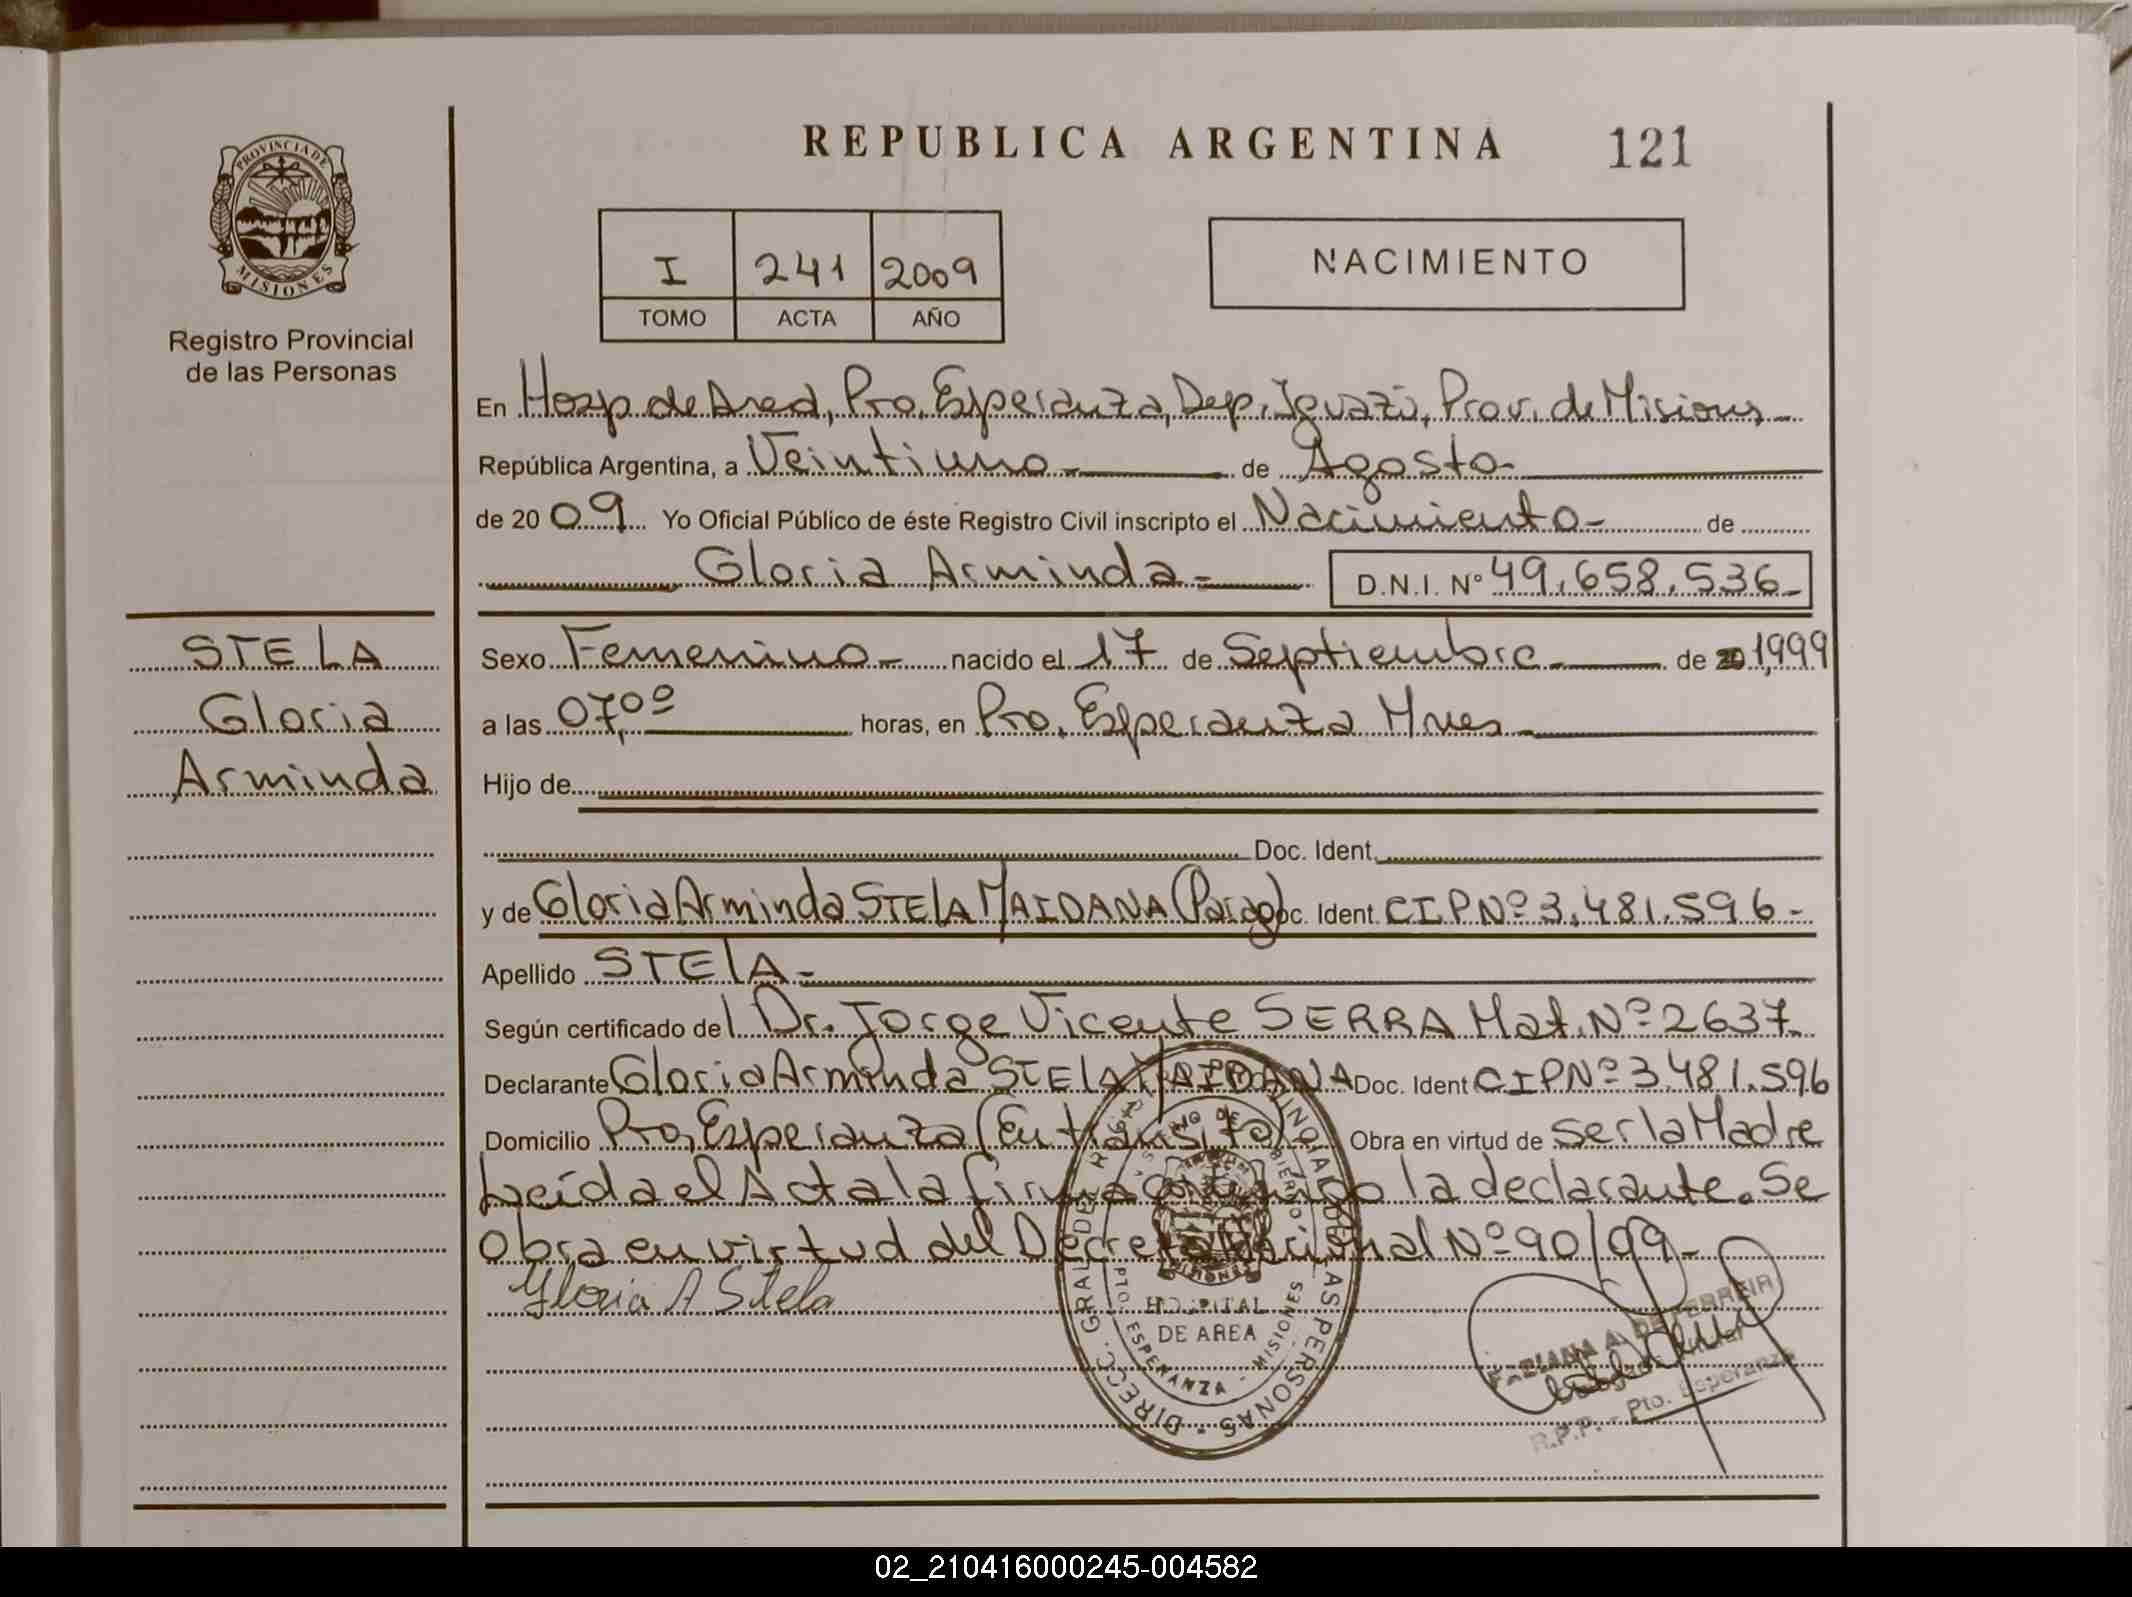 REPUBLICA ARGENTINA 121
PROVINCIA DE
MISIONES
Registro Provincial
de las Personas
I 241 2009
TOMO ACTA AÑO
NACIMIENTO
En Hosp de Area, Pto. Esperanza, Dep. Iguazú, Prov. de Misiones
República Argentina, a Veintiuno de Agosto
de 20 09 Yo Oficial Público de éste Registro Civil inscripto el Nacimiento de
Gloria Arminda D.N.I. Nº 49.658.536
STELA
Gloria
Arminda
Sexo Femenino nacido el 17 de Septiembre de 20 1999
a las 07,00 horas, en Pto. Esperanza Mnes
Hijo de
Doc. Ident.
y de Gloria Arminda STELA MAIDANA (Parag) Doc. Ident. CIPNº 3.481.596
Apellido STELA
Según certificado del Dr. Jorge Vicente SERRA Mat. Nº 2637
Declarante Gloria Arminda STELA MAIDANA Doc. Ident CIPNº 3481.596
Domicilio Pto. Esperanza (En transito) Obra en virtud de ser la Madre
Leída el Acta la firma conmigo la declarante. Se
Obra en virtud del Decreto Nacional Nº 90/09
Gloria A Stela
HOSPITAL
DE AREA
PTO. ESPERANZA - MISIONES
DIRECC. GRAL. DEL REGISTRO PROVINCIAL DE LAS PERSONAS
R.P.P. - Pto. Esperanza
02_210416000245-004582